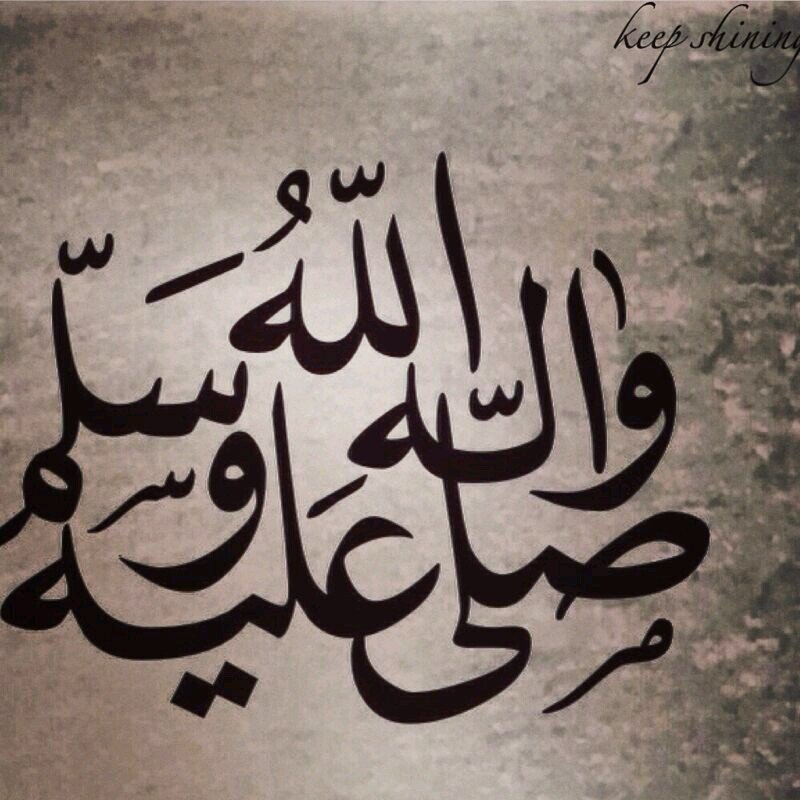 keep shining
صلى الله عليه وآله وسلم